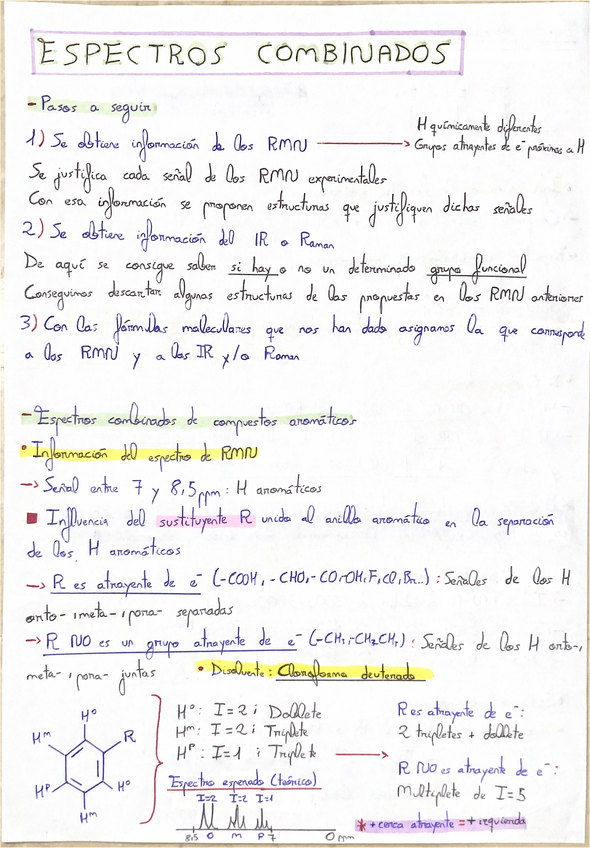 ESPECTROS COMBINADOS
- Pasos a seguir
1) Se obtiene información de los RMN → H químicamente diferentes
Grupos atrayentes de e⁻ próximos a H
Se justifica cada señal de los RMN experimentales
Con esa información se proponen estructuras que justifiquen dichas señales
2) Se obtiene información del IR o Raman
De aquí se consigue saber si hay o no un determinado grupo funcional
Conseguimos descartar algunas estructuras de las propuestas en los RMN anteriores
3) Con las fórmulas moleculares que nos han dado asignamos la que corresponde
a los RMN y a los IR y/o Raman
- Espectros combinados de compuestos aromáticos
• Información del espectro de RMN
→ Señal entre 7 y 8,5 ppm: H aromáticos
■ Influencia del sustituyente R unido al anillo aromático en la separación
de los H aromáticos
→ R es atrayente de e⁻ (-COOH, -CHO, -CO-OH, F, Cl, Br...): Señales de los H
orto-, meta-, para- separadas
→ R NO es un grupo atrayente de e⁻ (-CH₃, -CH₂CH₃): Señales de los H orto-,
meta-, para- juntas
• Disolvente: Cloroformo deuterado
Hᵒ
Hᵐ
R
Hᴾ
Hᵒ
Hᵐ
Hᵒ: I=2; Doblete
Hᵐ: I=2; Triplete
Hᴾ: I=1; Triplete →
Espectro esperado (teórico)
I=2 I=2 I=1
8,5 O M P 7 0 ppm
R es atrayente de e⁻:
2 tripletes + doblete
R NO es atrayente de e⁻:
Multiplete de I=5
* + cerca atrayente = + izquierda